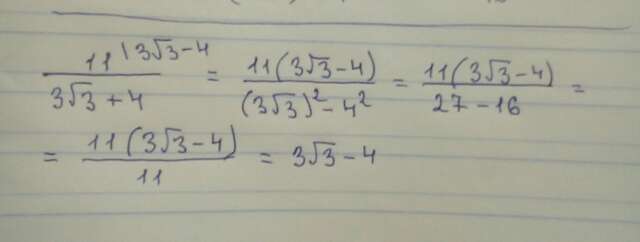 11 |3√3-4 / 3√3+4 = 11(3√3-4) / (3√3)² - 4² = 11(3√3-4) / 27-16 =
= 11(3√3-4) / 11 = 3√3-4